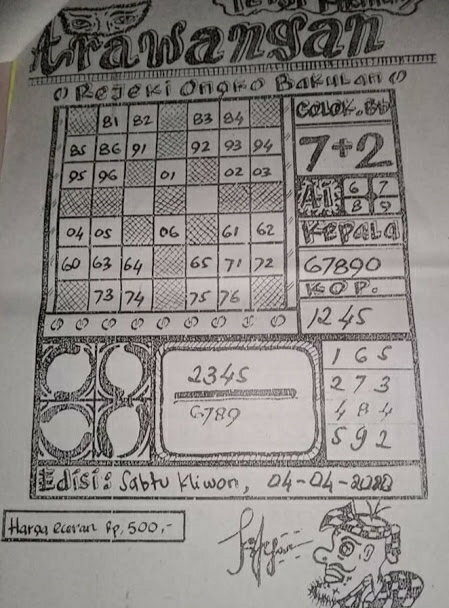 Trawangan
Rejeki Ongko Bakulan
81 82 83 84
85 86 91 92 93 94
95 96 01 02 03
04 05 06 61 62
60 63 64 65 71 72
73 74 75 76
COLOK.BB
7+2
AI 6 7
8 9
Kepala
67890
KOP.
1245
2345
6789
1 6 5
2 7 3
4 8 4
5 9 2
Edisi: Sabtu Kliwon, 04-04-2020
Harga eceran Rp, 500,-